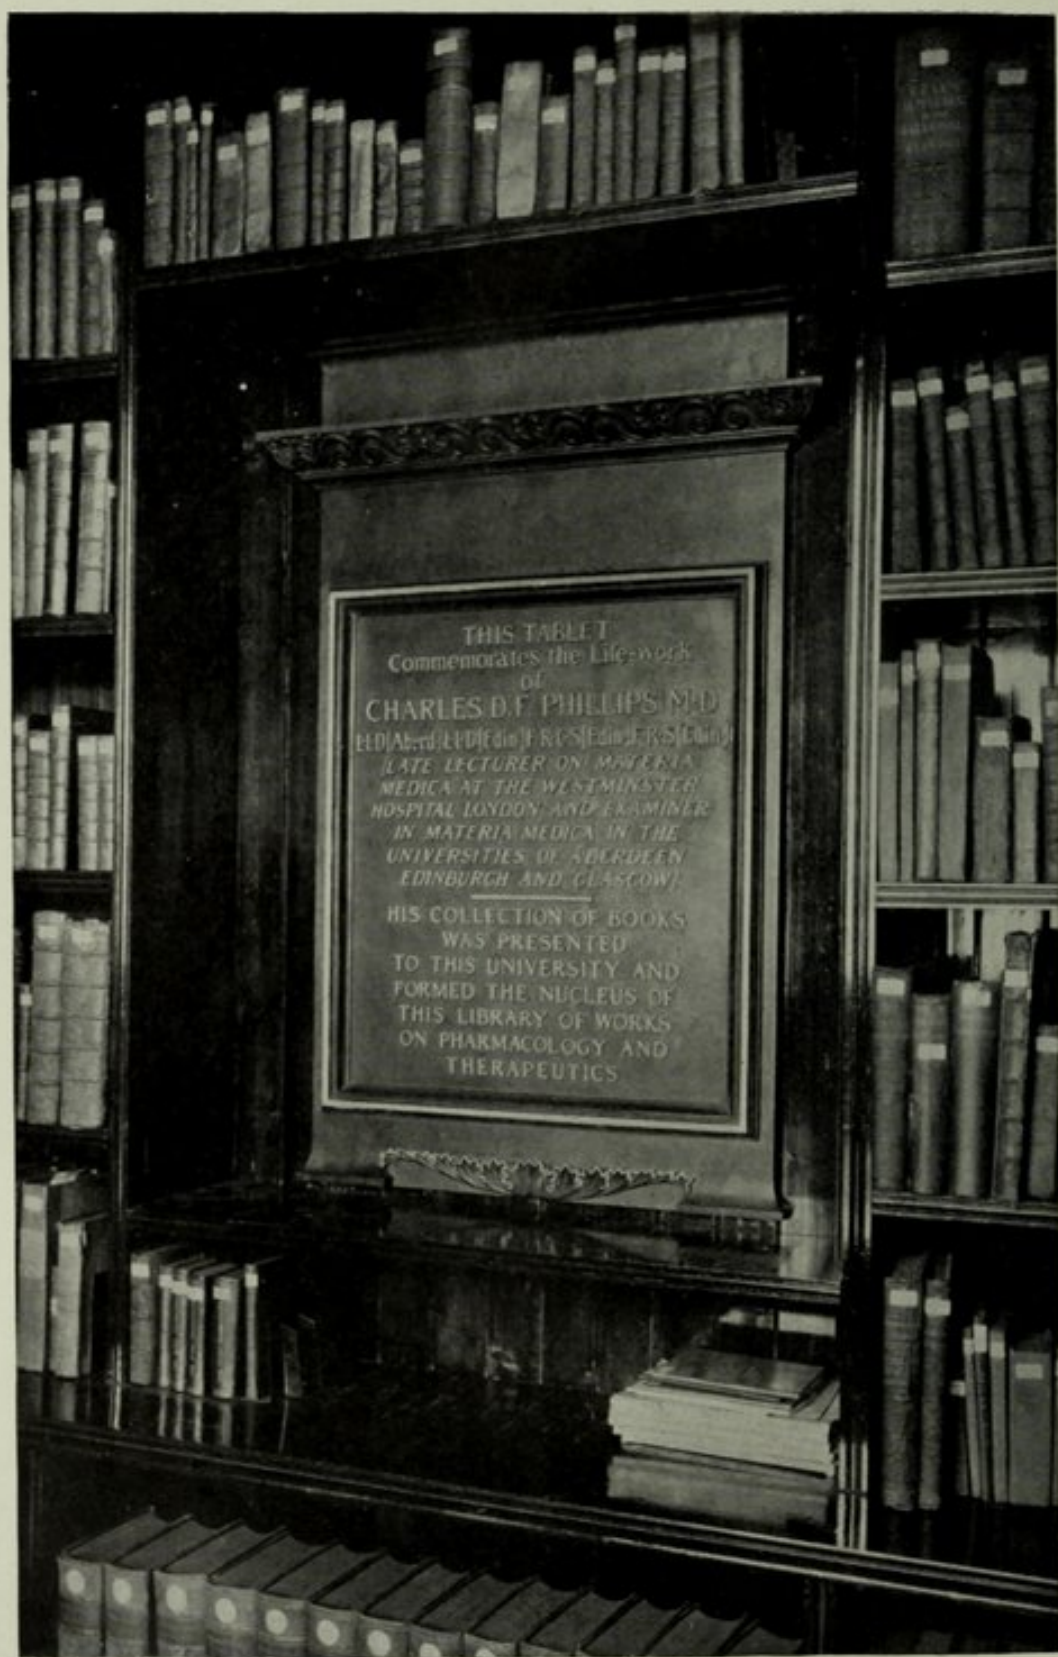 THIS TABLET
Commemorates the Life-work
of
CHARLES D.F. PHILLIPS M·D
LL·D[Aberd] LL·D[Edin] F·R·C·S[Edin] F·R·S[Edin]
[LATE LECTURER ON MATERIA
MEDICA AT THE WESTMINSTER
HOSPITAL LONDON AND EXAMINER
IN MATERIA MEDICA IN THE
UNIVERSITIES OF ABERDEEN
EDINBURGH AND GLASGOW]
HIS COLLECTION OF BOOKS
WAS PRESENTED
TO THIS UNIVERSITY AND
FORMED THE NUCLEUS OF
THIS LIBRARY OF WORKS
ON PHARMACOLOGY AND
THERAPEUTICS